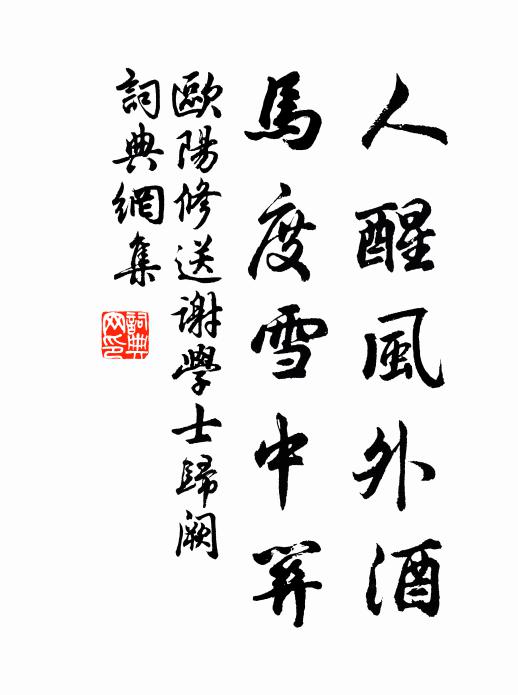 人醒風外酒
馬度雪中關
歐陽修送謝學士歸闕
詞典網集
詞典
网印